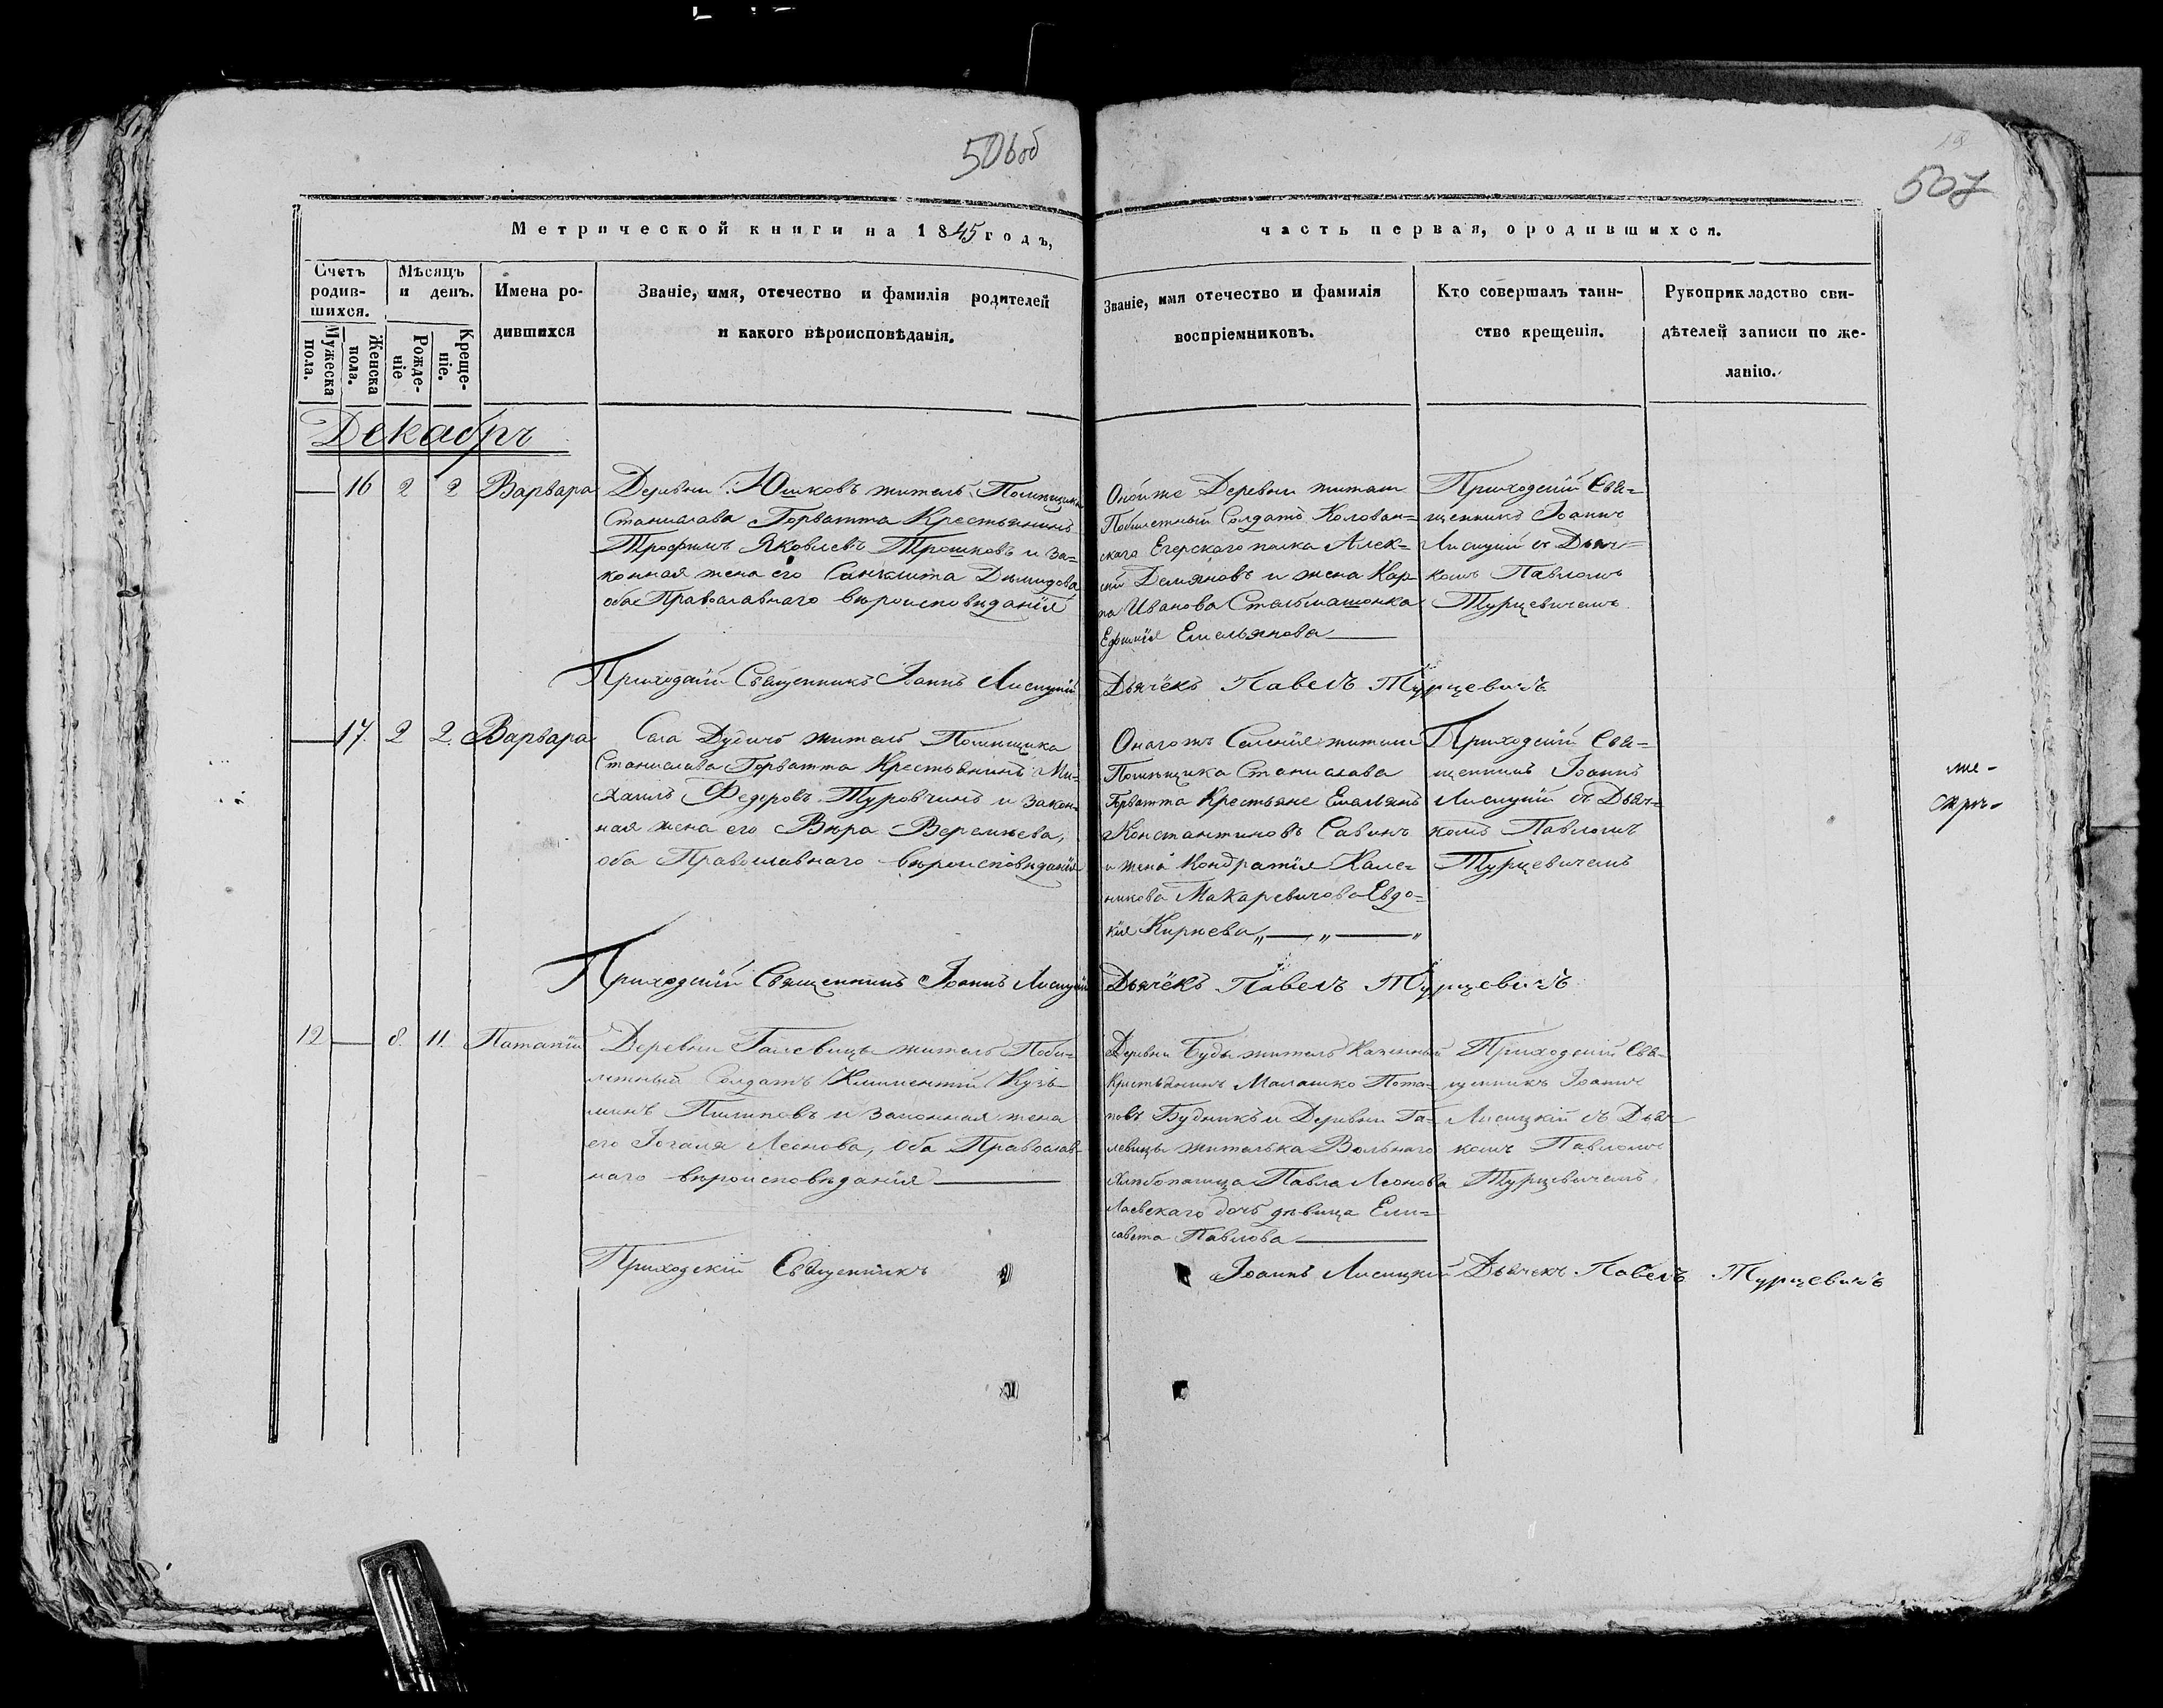 506об
507
Метрической книги на 1845 годъ,
часть первая, ородившихся.
Счетъ родив-шихся.
Мужеска пола.
Женска пола.
Мѣсяцъ и день.
Рожде-ніе
Креще-ніе.
Имена ро-
дившихся
Званіе, имя, отечество и фамилія родителей
и какого вѣроисповѣданія.
Званіе, имя отечество и фамилія
воспріемниковъ.
Кто совершалъ таин-
ство крещенія.
Рукоприкладство сви-
дѣтелей записи по же-
ланію.
Декабрь
16 2 2 Варвара
Деревни Юшковъ житель Помещика
Станислава Горватта Крестьянинъ
Трофимъ Яковлевъ Трошковъ и за=
конная жена его Синклита Демидова
оба Православнаго вѣроисповѣданія
Оной же Деревни жители
Побилетный Солдатъ Колован=
скаго Егерскаго полка Алек=
сѣй Демяновъ и жена Кар=
па Иванова Стальмашонка
Ефимія Емельянова
Приходскій Свя=
щенникъ Іоаннъ
Лисицкій съ Дьяч=
комъ Павломъ
Турцевичемъ.
Приходскій Священникъ Іоаннъ Лисицкій
Дьячёкъ Павелъ Турцевичъ
17. 2 2. Варвара
Села Дудичъ житель Помещика
Станислава Горватта Крестьянинъ Ми=
хаилъ Федоровъ Туровчинъ и закон=
ная жена его Вѣра Веремѣева,
оба Православнаго вѣроисповѣданія
Онагожъ Селенія жители
Помѣщика Станислава
Горватта Крестьяне Емельянъ
Константиновъ Савинъ
и жена Кондратія Кале=
никова Макаревичова Евдо=
кія Кирѣева
Приходскій Свя=
щенникъ Іоаннъ
Лисицкій съ Дьяч=
комъ Павломъ
Турцевичемъ
Приходскій Священникъ Іоаннъ Лисицкій
Дьячёкъ Павелъ Турцевичъ
12 8. 11. Патапій
Деревни Галевицъ житель Поби=
летный Солдатъ Климентій Кузь=
минъ Пилиповъ и законная жена
его Леонова, оба Православ=
наго вѣроисповѣданія
Деревни Буды житель Казенный
Крестьянинъ Малашко Пота=
повъ Будникъ и Деревни Га=
левицъ жителька Вольнаго
Хлѣбопашца Павла Леонова
Лаевскаго дочь дѣвица Ели=
савета Павлова
Приходскій Свя=
щенникъ Іоаннъ
Лисицкій съ Дьяч
комъ Павломъ
Турцевичемъ.
Приходскій Священникъ
Іоаннъ Лисицкій Дьячекъ Павелъ Турцевичъ